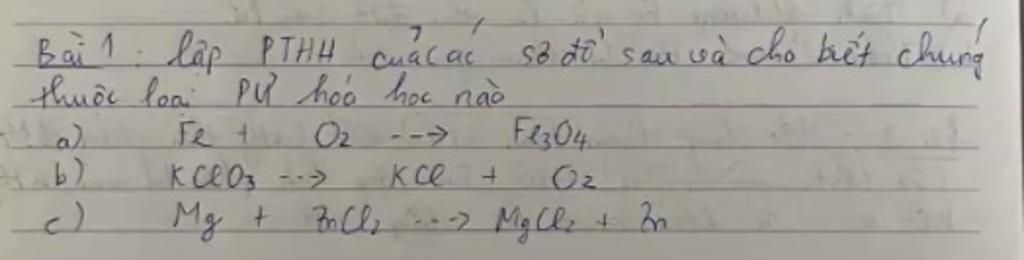 Bài 1: lập PTHH của các sơ đồ sau và cho biết chúng
thuộc loại PƯ hóa học nào
a) Fe + O₂ ---> Fe₃O₄
b) KClO₃ ---> KCl + O₂
c) Mg + ZnCl₂ ---> MgCl₂ + Zn